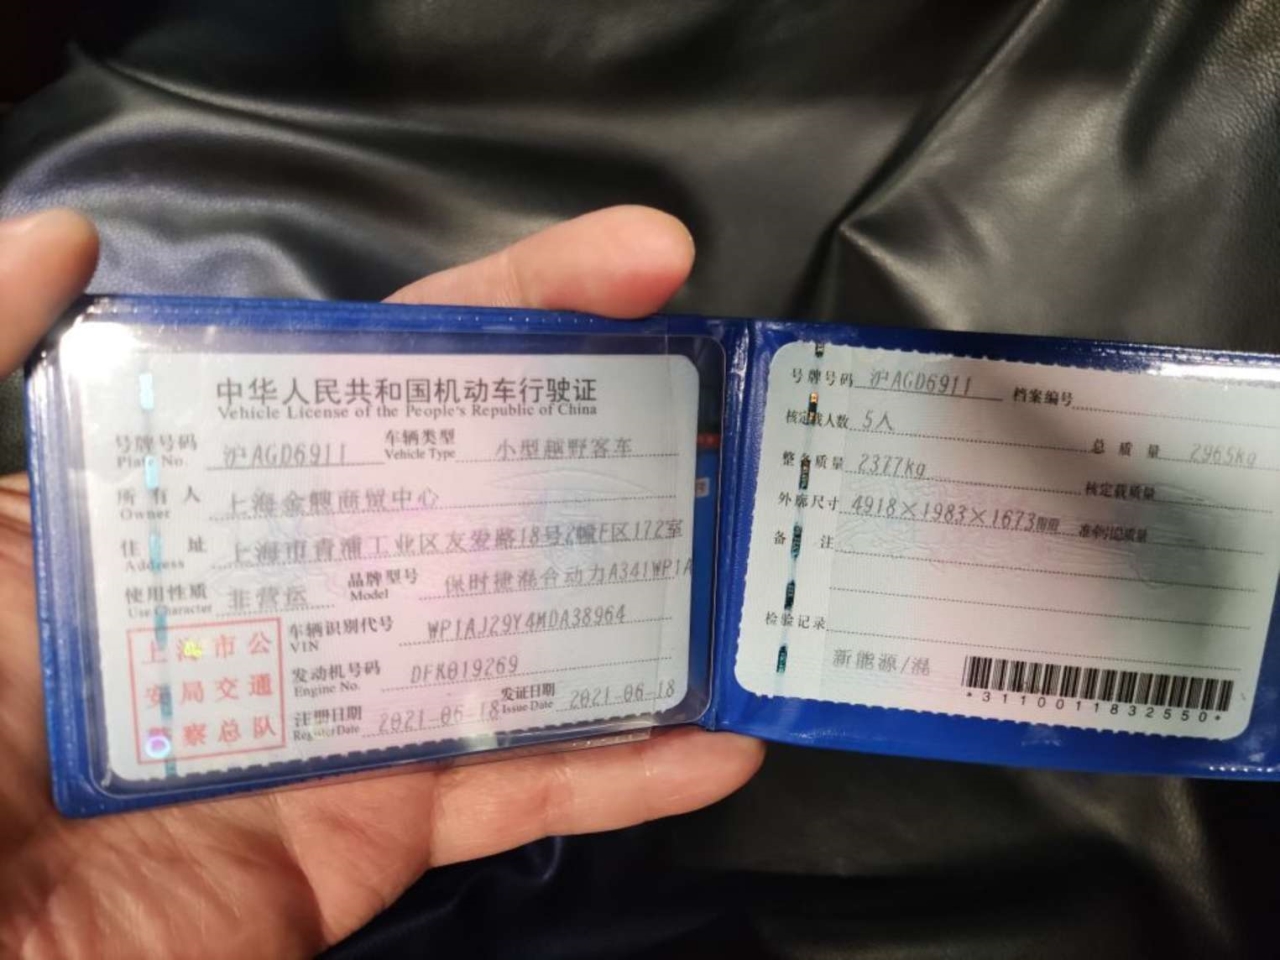 中华人民共和国机动车行驶证
Vehicle License of the People's Republic of China
号牌号码 沪AGD6911 车辆类型 小型越野客车
Plate No. Vehicle Type
所有人 上海金艘商贸中心
Owner
住址 上海市青浦工业区友爱路18号2幢F区172室
Address
使用性质 非营运 品牌型号 保时捷混合动力A341WP1A
Use Character Model
上海市公
安局交通
警察总队
车辆识别代号 WP1AJ29Y4MDA38964
VIN
发动机号码 DFK019269
Engine No.
注册日期 2021-06-18 发证日期 2021-06-18
Register Date Issue Date
号牌号码 沪AGD6911 档案编号
核定载人数 5人 总质量 2965kg
整备质量 2377kg 核定载质量
外廓尺寸 4918×1983×1673mm 准牵引总质量
备注
检验记录
新能源/混
*3110011832550*